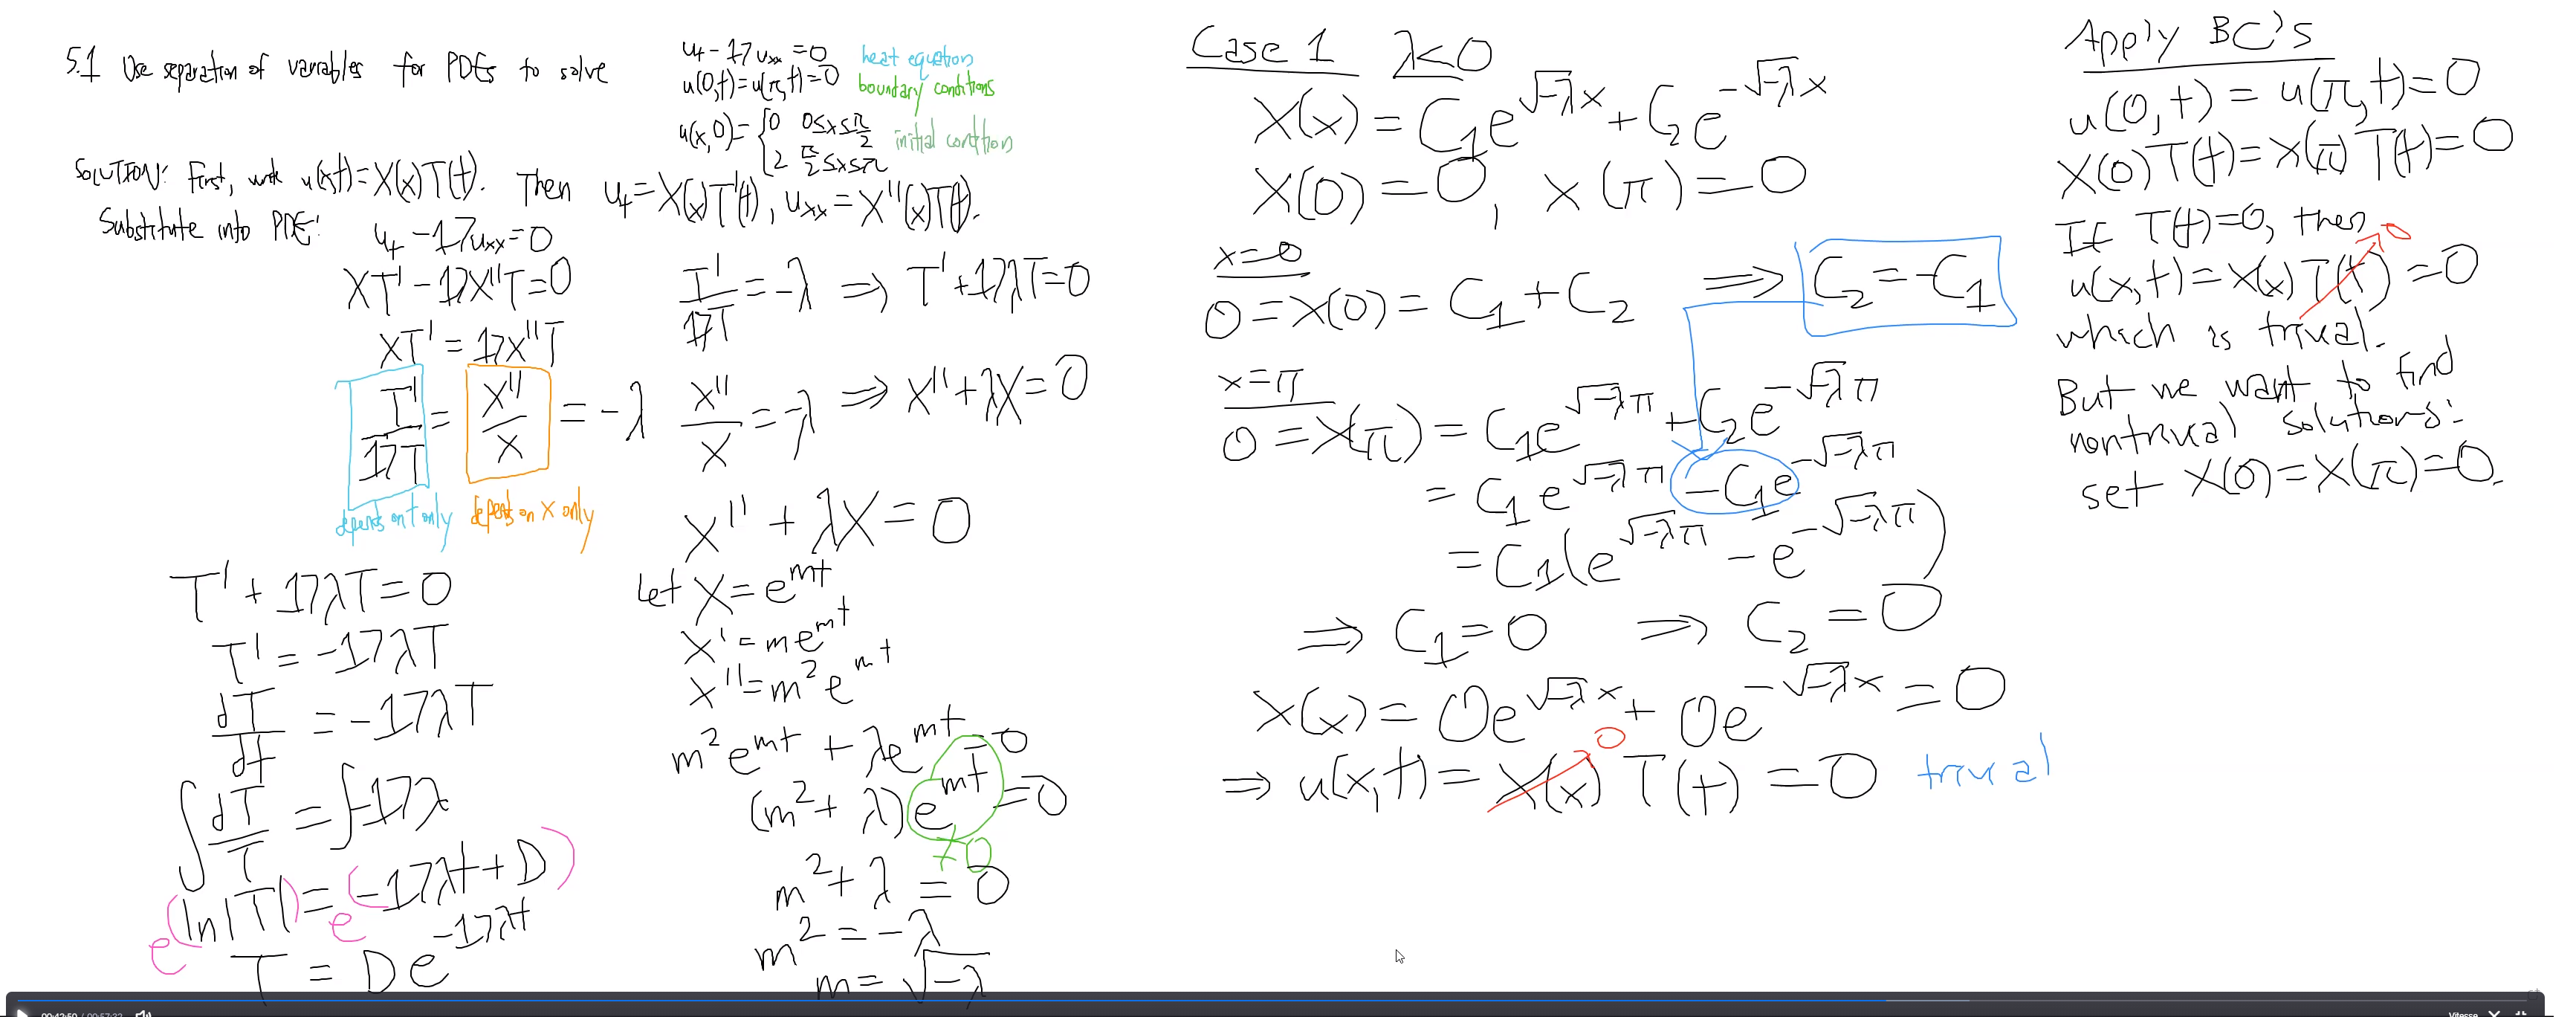 5.1 Use separation of variables for PDEs to solve
u_t - 17u_xx = 0 heat equation
u(0,t) = u(π,t) = 0 boundary conditions
u(x,0) = { 0 0≤x≤π/2 initial condition
2 π/2≤x≤π
SOLUTION: First, write u(x,t) = X(x)T(t). Then u_t = X(x)T'(t), u_xx = X''(x)T(t).
Substitute into PDE:
u_t - 17u_xx = 0
XT' - 17X''T = 0
XT' = 17X''T
T'/17T = X''/X = -λ
depends on t only depends on x only
T'/17T = -λ ⟹ T' + 17λT = 0
X''/X = -λ ⟹ X'' + λX = 0
T' + 17λT = 0
T' = -17λT
dT/dt = -17λT
∫ dT/T = ∫ -17λ
e^(ln|T|) = e^(-17λt + D)
T = De^(-17λt)
X'' + λX = 0
Let X = e^(mt)
X' = me^(mt)
X'' = m²e^(mt)
m²e^(mt) + λe^(mt) = 0
(m² + λ)e^(mt) = 0
≠0
m² + λ = 0
m² = -λ
m = √-λ
Case 1 λ<0
X(x) = C₁e^(√-λ x) + C₂e^(-√-λ x)
X(0) = 0, X(π) = 0
x=0
0 = X(0) = C₁ + C₂ ⟹ C₂ = -C₁
x=π
0 = X(π) = C₁e^(√-λ π) + C₂e^(-√-λ π)
= C₁e^(√-λ π) - C₁e^(-√-λ π)
= C₁(e^(√-λ π) - e^(-√-λ π))
⟹ C₁ = 0 ⟹ C₂ = 0
X(x) = 0e^(√-λ x) + 0e^(-√-λ x) = 0
0
⟹ u(x,t) = X(x) T(t) = 0 trivial
Apply BC's
u(0,t) = u(π,t) = 0
X(0)T(t) = X(π)T(t) = 0
If T(t)=0, then
0
u(x,t) = X(x)T(t) = 0
which is trivial.
But we want to find
nontrivial solutions:
set X(0) = X(π) = 0.
00:42:50 / 00:57:32
Vitesse